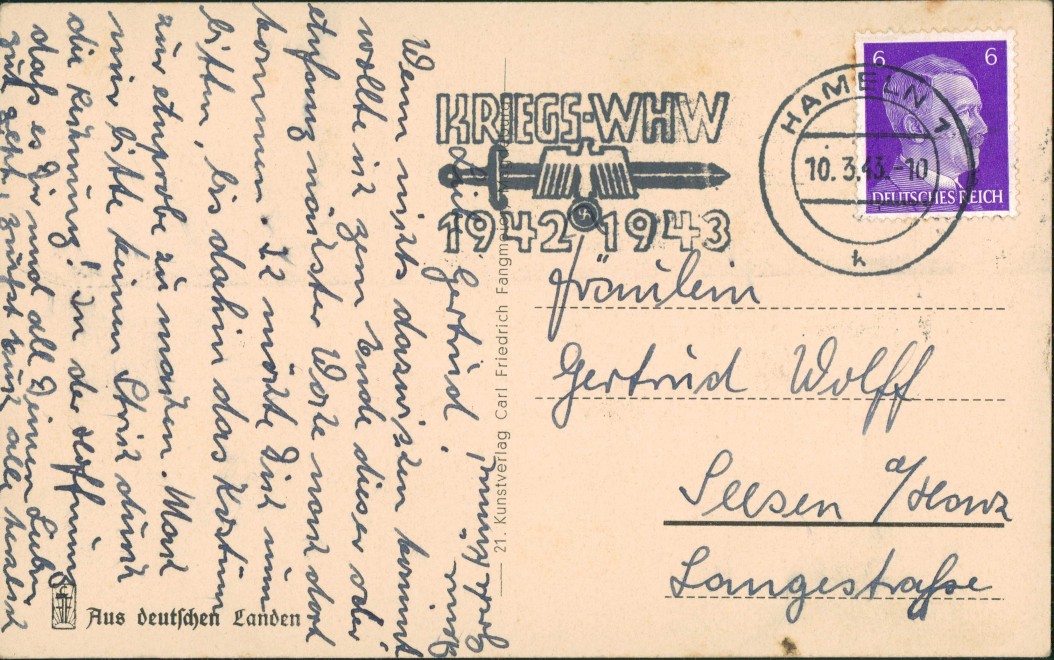 KRIEGS-WHW
1942 1943
HAMELN 1
10.3.43.-10
k
6 6
DEUTSCHES REICH
Fräulein
Gertrud Wolff
Seesen a/Harz
Langestraße
21. Kunstverlag Carl Friedrich Fangmeier, Magdeburg
Gertrud!
Wenn nichts dazwischen kommt
wollte ich zum Ende dieser oder
Anfang nächster Woche nach dort
kommen. Ich möchte Dich nun
bitten, bis dahin das Kostüm
zur Anprobe zu machen. Mach
mir bitte keinen Strich durch
die Rechnung! In der Hoffnung
dass es Dir und all Deinen Lieben
gut geht, grüßt Euch alle herzlich
Aus deutschen Landen